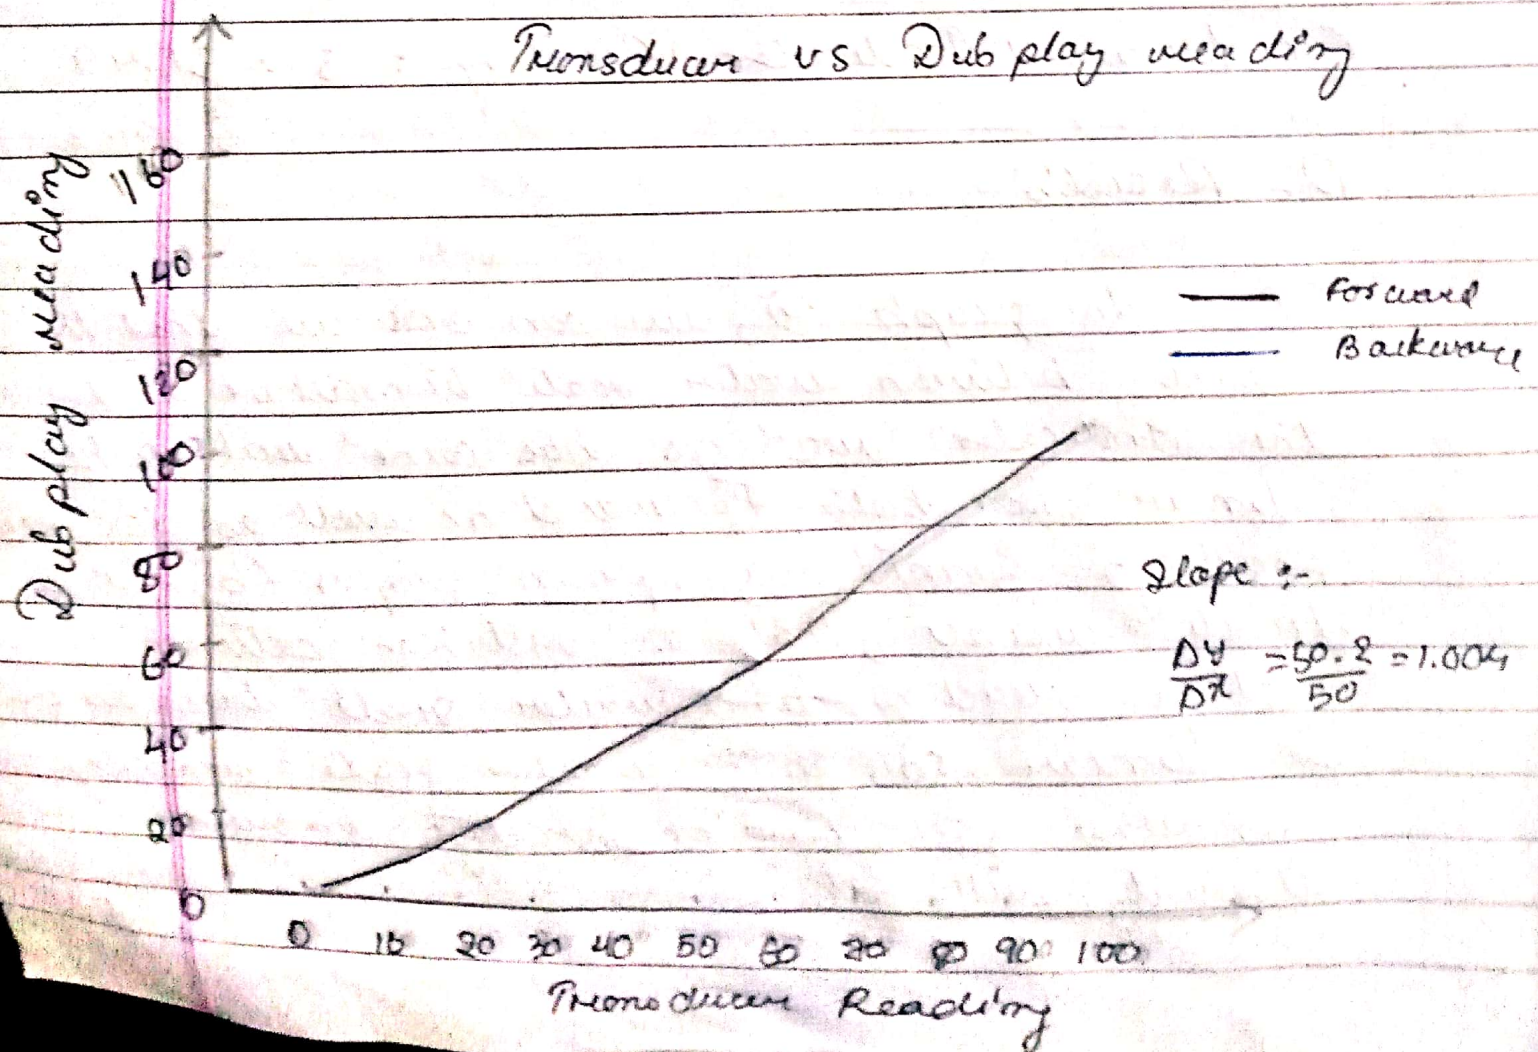 Transducer vs Display reading
Display reading
160
140
120
100
80
60
40
20
0
Forward
Backward
Slope :-
Δy/Δx = 50.2/50 = 1.004
0 10 20 30 40 50 60 70 80 90 100
Transducer Reading